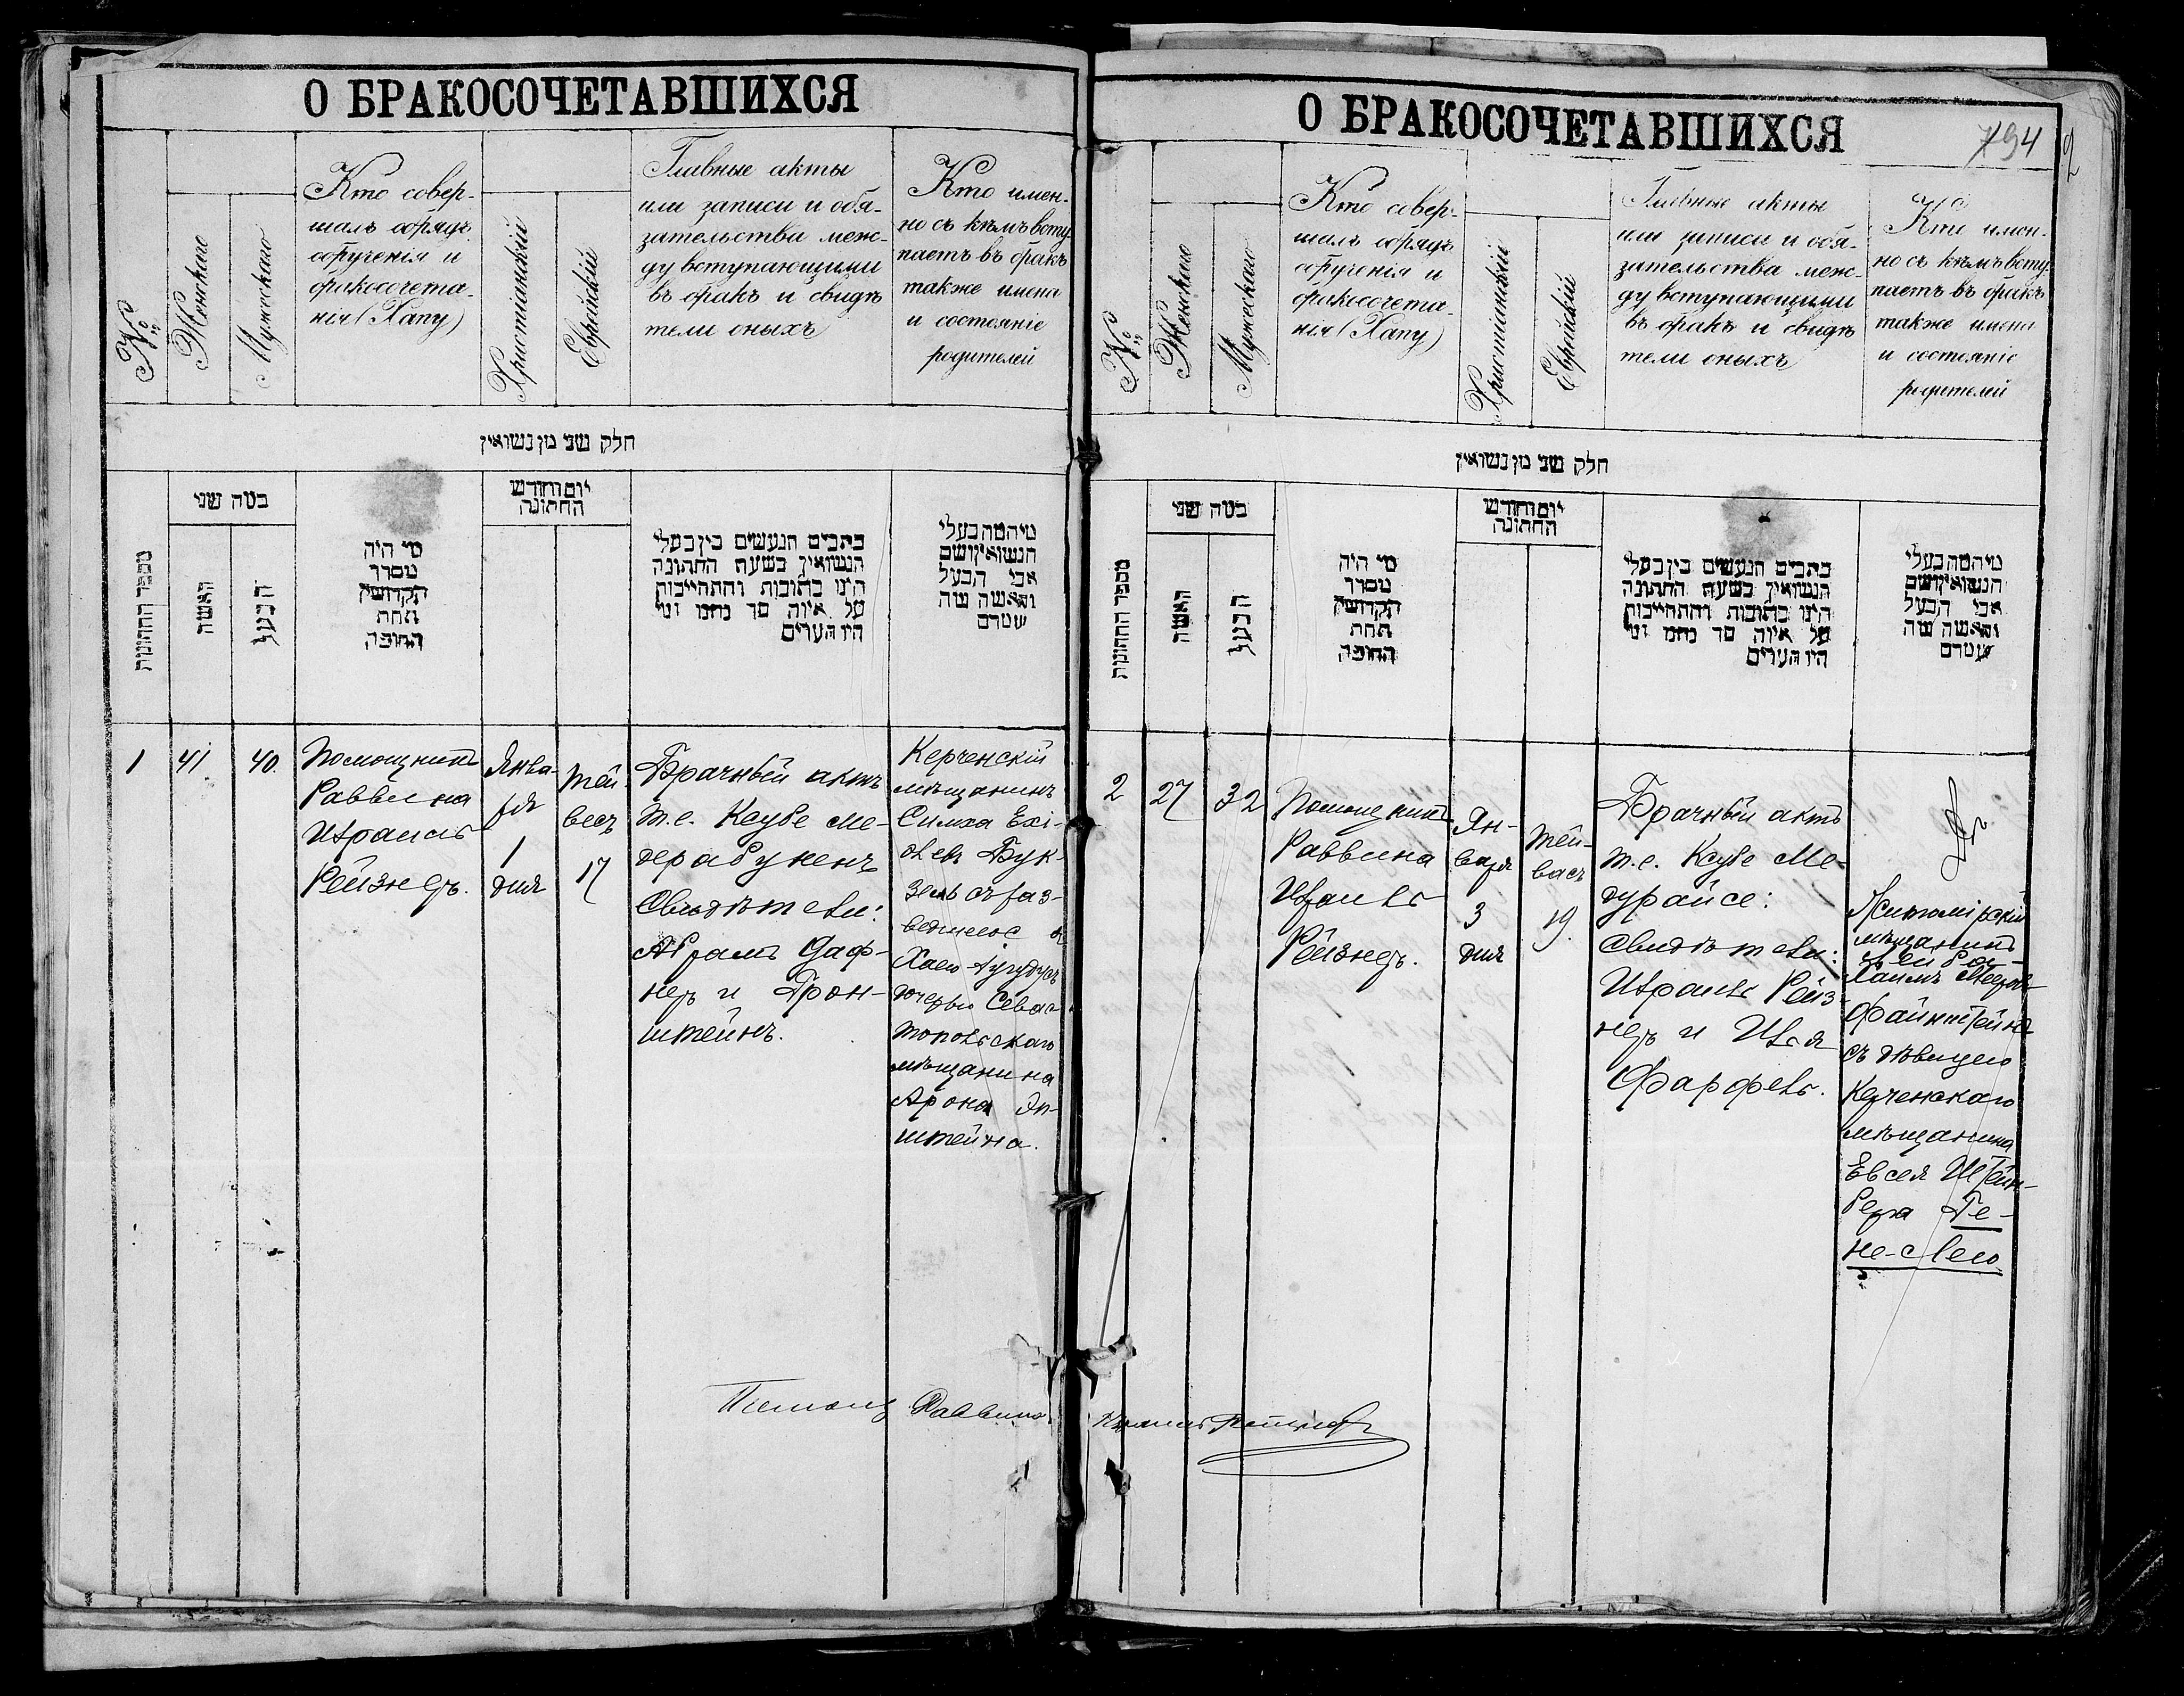 О БРАКОСОЧЕТАВШИХСЯ
№
Женскаго
Мужескаго
Кто совер-
шалъ обрядъ
обрученія и
бракосочета-
нія (Хапу)
Христіанскій
Еврейскій
Главные акты
или записи и обя-
зательства меж-
ду вступающими
въ бракъ и свидѣ
тели оныхъ
Кто имен-
но съ кѣмъ всту-
паетъ въ бракъ
также имена
и состояніе
родителей
חלק שני מן נשואין
מספר החתונות
במה שני
האשה
הבעל
מי היה
מסדר
הקדושין
תחת
החופה
יום וחודש
החתונה
כתבים הנעשים בין בעלי
הנשואין בשעת החתונה
היינו כתובות והתחייבות
על איזה סך נחמו ומי
היו העדים
מיהמה בעלי
הנשואין ושם
אבי הבעל
והאשה מה
שמרם
1
41
40.
Помощникъ
Раввина
Израиль
Рейзнеръ.
Янва-
ря
1
дня
Тей-
весъ
17
Брачный актъ
т.е. Ксубе ме-
дерабуненъ
Свидѣтели:
Абрамъ Даф-
неръ и Брон-
штейнъ.
Керченскій
мѣщанинъ
Симха Ехі-
елев Бук-
зель съ раз-
ведшеюс
Хаею
дочерью Севас-
топольскаго
мѣщанина
Арона Эп-
штейна.
Помощ Раввина
О БРАКОСОЧЕТАВШИХСЯ
794
2
№
Женскаго
Мужескаго
Кто совер-
шалъ обрядъ
обрученія и
бракосочета-
нія (Хапу)
Христіанскій
Еврейскій
Главные акты
или записи и обя-
зательства меж-
ду вступающими
въ бракъ и свидѣ
тели оныхъ
Кто имен-
но съ кѣмъ всту-
паетъ въ бракъ
также имена
и состояніе
родителей
חלק שני מן נשואין
מספר החתונות
במה שני
האשה
הבעל
מי היה
מסדר
הקדושין
תחת
החופה
יום וחודש
החתונה
כתבים הנעשים בין בעלי
הנשואין בשעת החתונה
היינו כתובות והתחייבות
על איזה סך נחמו ומי
היו העדים
מיהמה בעלי
הנשואין ושם
אבי הבעל
והאשה מה
שמרם
2
27
32
Помощникъ
Раввина
Израиль
Рейзнеръ.
Ян-
варя
3
дня
Тей-
васъ
19.
Брачный актъ
т.е. Ксубе Ме-
дурайсе:
Свидѣтели:
Израиль Рейз-
неръ и Илья
Фарфель.
Житомірскій
мѣщанинъ
Хаимъ Мееров
Файнштейнъ
съ дѣвицею
Керченскаго
мѣщанина
Евсея Штейн-
бера Ге-
не-Лею